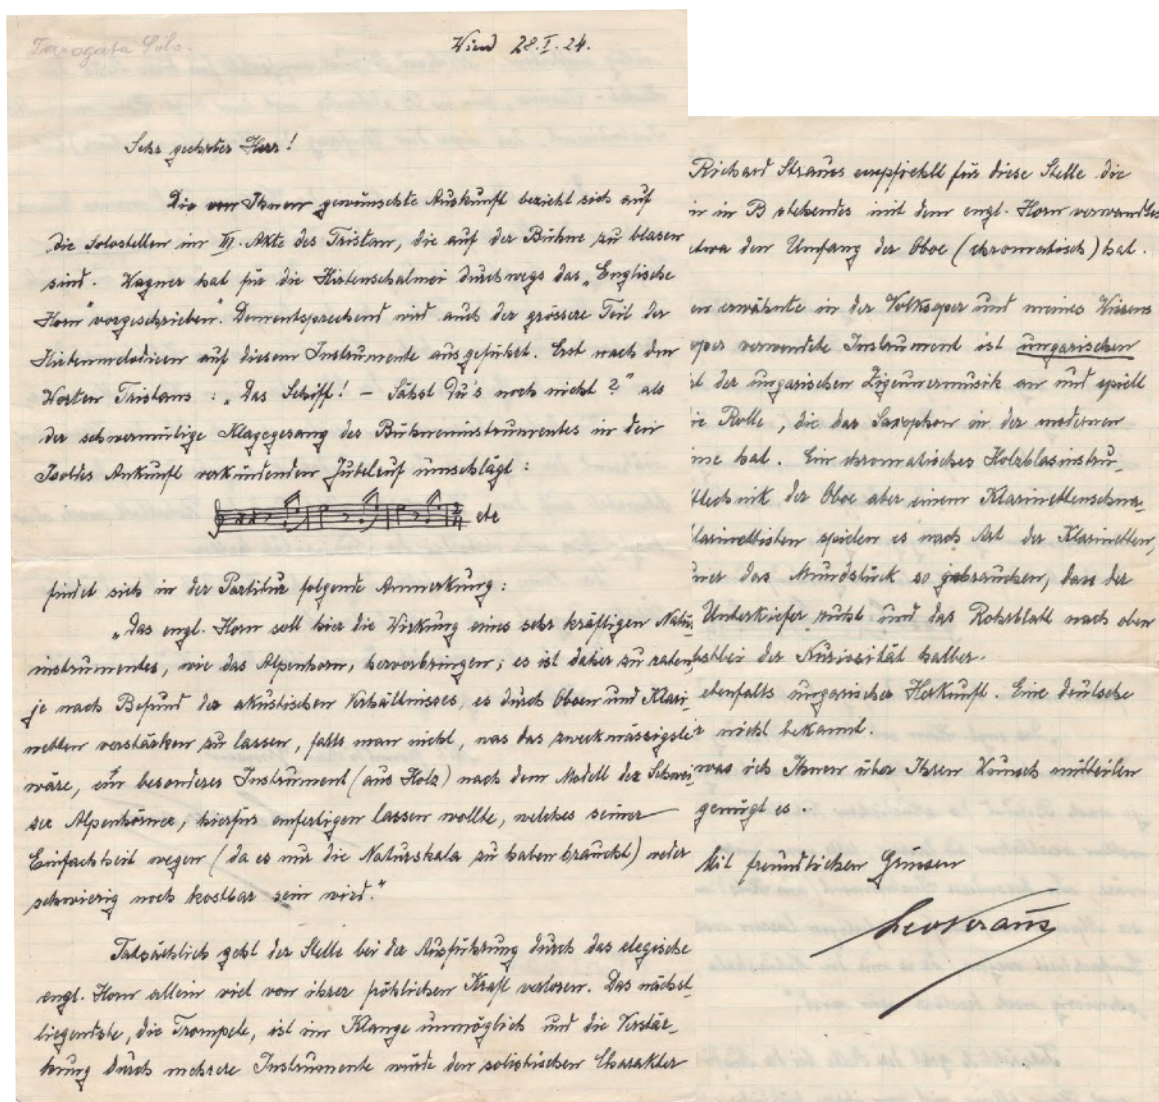 Tarogata Solo.
Wien 28.I.24.
Sehr geehrter Herr!
Die von Ihnen gewünschte Auskunft bezieht sich auf
die Solostellen im III. Akte des Tristan, die auf der Bühne zu blasen
sind. Wagner hat für die Hirtenschalmei durchwegs das „Englische
Horn" vorgeschrieben. Dementsprechend wird auch der grössere Teil der
Hirtenmelodieen auf diesem Instrumente ausgeführt. Erst nach den
Worten Tristans: „Das Schiff! – Sähst Du's noch nicht?" als
der schwermütige Klagegesang des Bühneninstrumentes in den
Isoldes Ankunft verkündenden Jubelruf umschlägt:
etc
findet sich in der Partitur folgende Anmerkung:
„Das engl. Horn soll hier die Wirkung eines sehr kräftigen Natur-
instrumentes, wie das Alpenhorn, hervorbringen; es ist daher zu raten,
je nach Befund des akustischen Verhältnisses, es durch Oboen und Klari-
netten verstärken zu lassen, falls man nicht, was das zweckmässigste
wäre, ein besonderes Instrument (aus Holz) nach dem Modell der Schwei-
zer Alpenhörner, hierfür anfertigen lassen wollte, welches seiner
Einfachheit wegen (da es nur die Naturskala zu haben braucht) weder
schwierig noch kostbar sein wird."
Tatsächlich geht der Stelle bei der Ausführung durch das elegische
engl. Horn allein viel von ihrer fröhlichen Kraft verloren. Das nächst-
liegendste, die Trompete, ist im Klange unmöglich und die Verstär-
kung durch mehrere Instrumente würde den solistischen Charakter
Richard Strauss empfiehlt für diese Stelle die
in B stehendes mit dem engl. Horn verwandtes
etwa den Umfang der Oboe (chromatisch) hat.
erwähnte in der Volksoper und meines Wissens
oper verwendete Instrument ist ungarischen
der ungarischen Zigeunermusik an und spielt
die Rolle, die das Saxophon in der modernen
hat. Ein chromatisches Holzblasinstru-
technik der Oboe aber einem Klarinettenschna-
Klarinettisten spielen es nach Art der Klarinetten,
das Mundstück so gebrauchen, dass der
Unterkiefer ruht und das Rohrblatt nach oben
der Kuriosität halber.
ebenfalls ungarischer Herkunft. Eine deutsche
nicht bekannt.
was ich Ihnen über Ihren Wunsch mitteilen
genügt es.
Mit freundlichen Grüssen
Leo Kraus